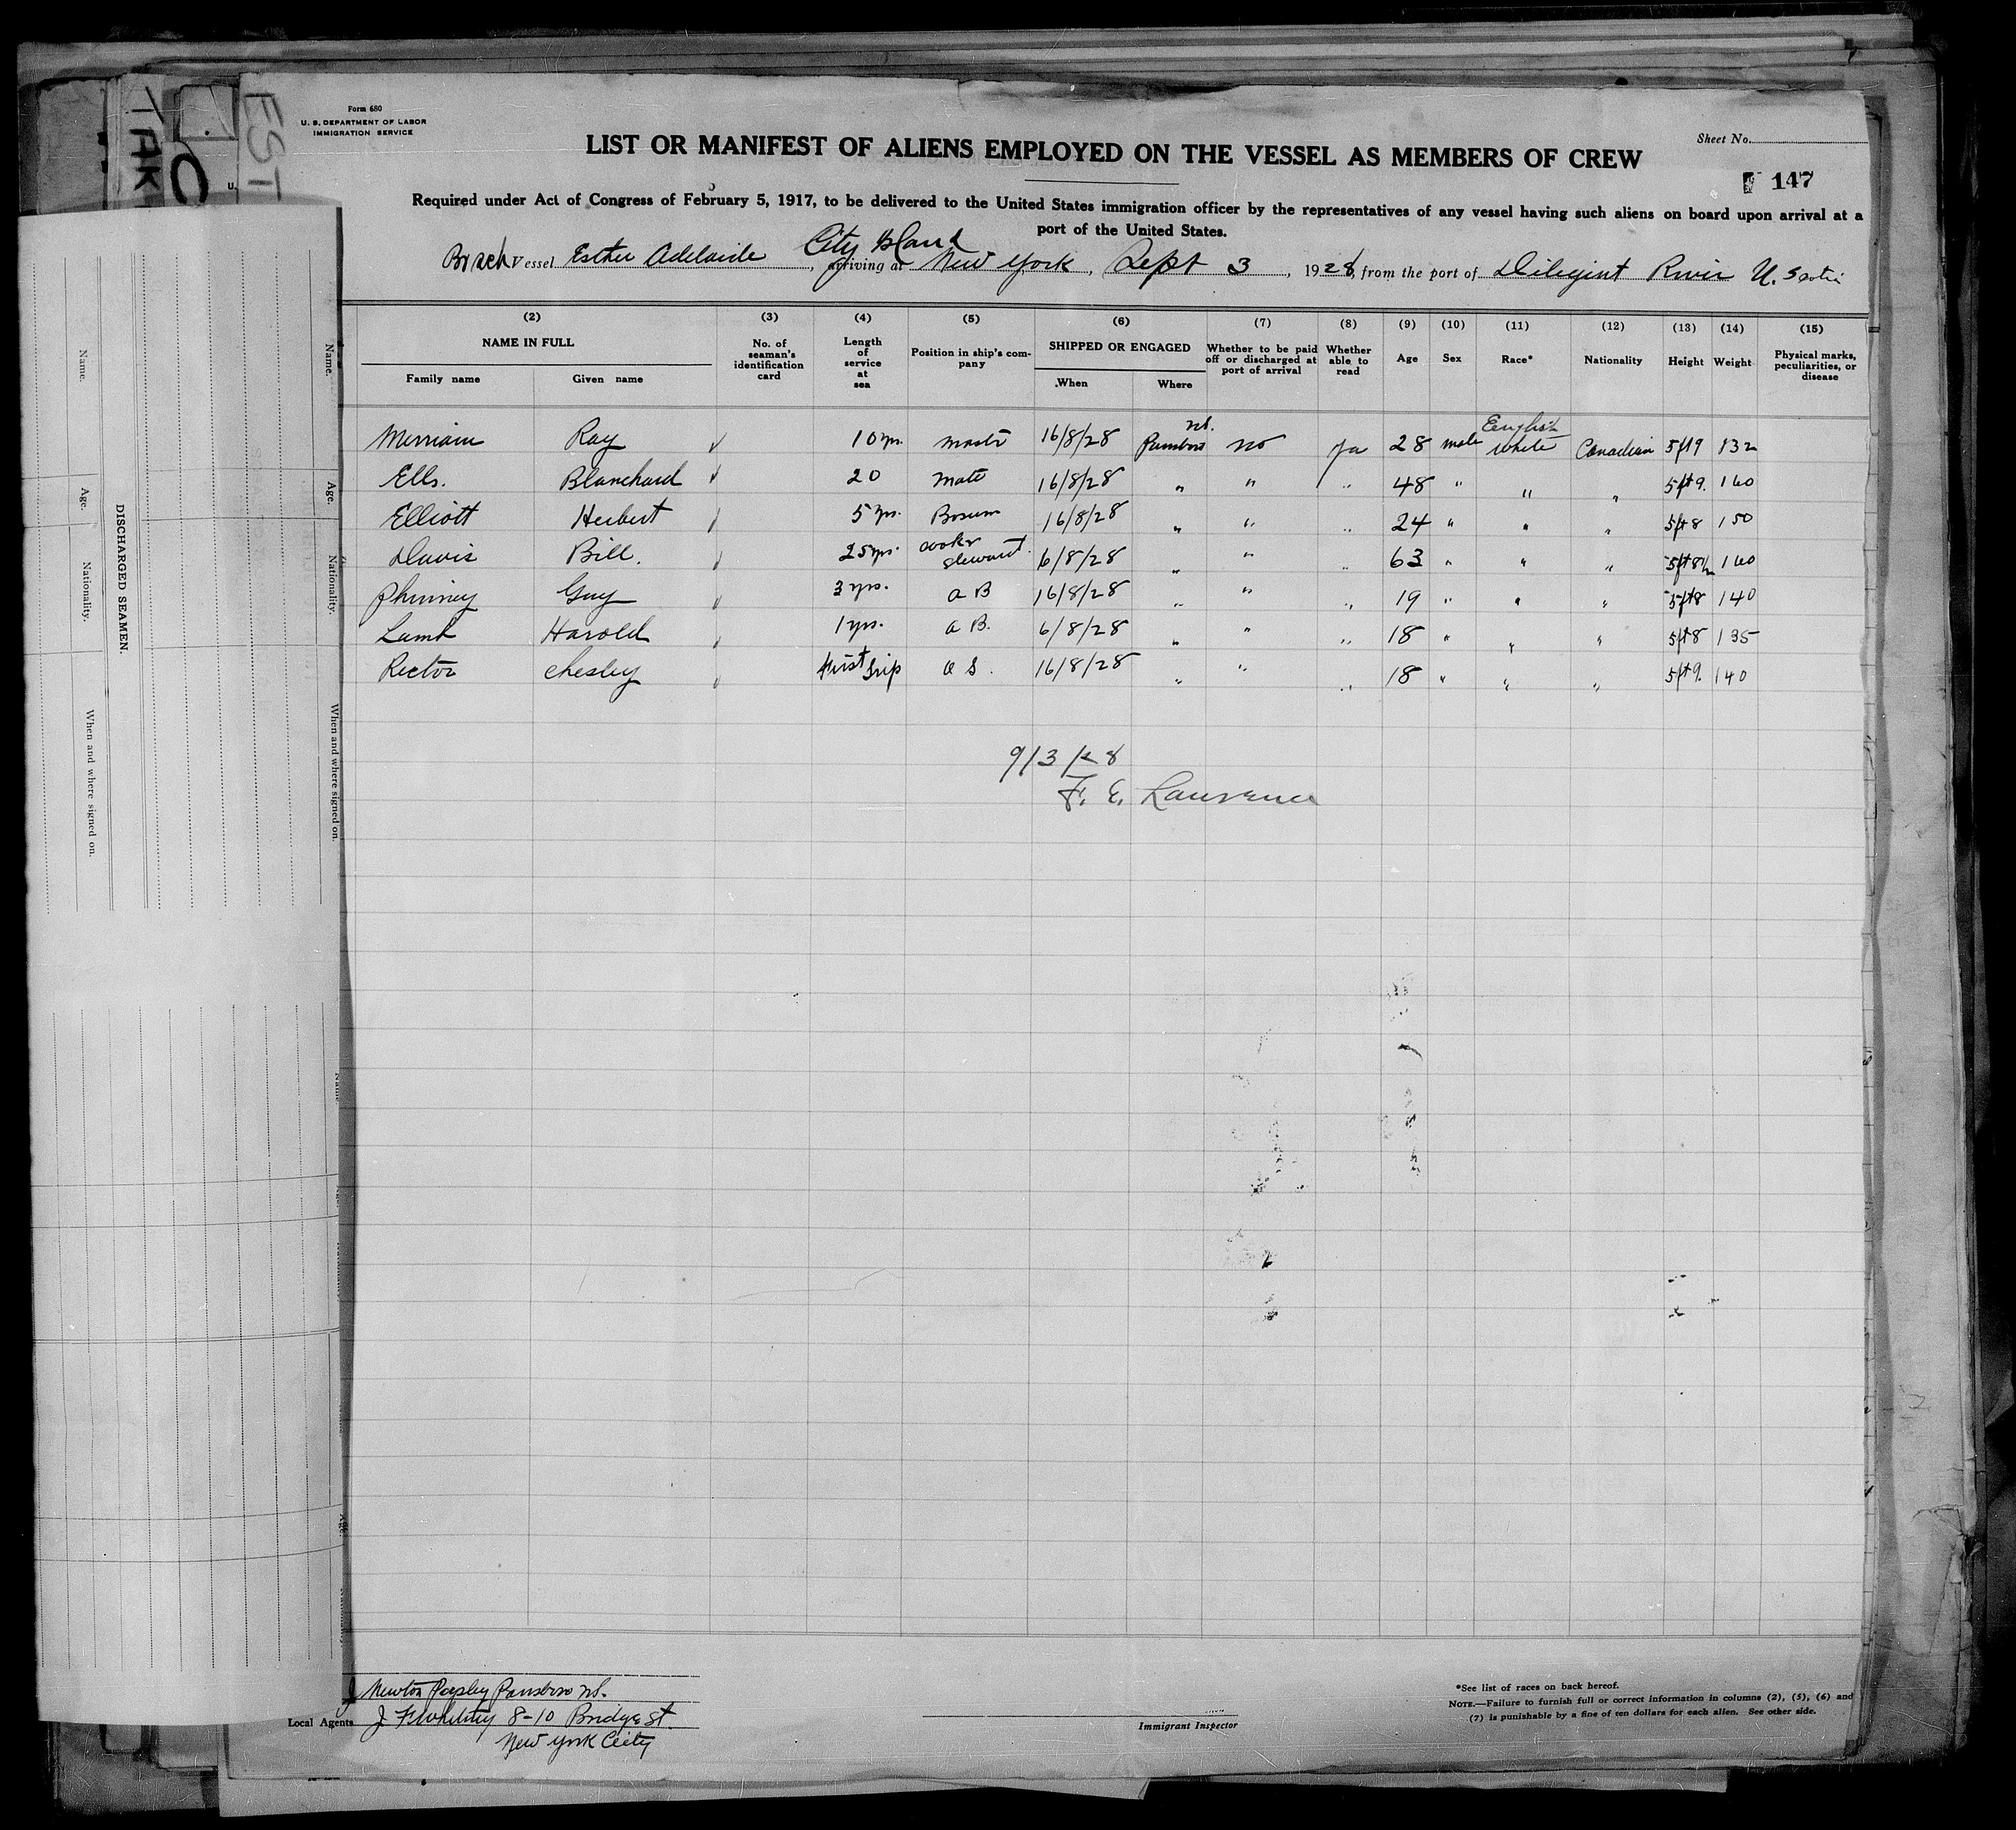 Form 680
U. S. DEPARTMENT OF LABOR
IMMIGRATION SERVICE
Sheet No.
LIST OR MANIFEST OF ALIENS EMPLOYED ON THE VESSEL AS MEMBERS OF CREW
147
Required under Act of Congress of February 5, 1917, to be delivered to the United States immigration officer by the representatives of any vessel having such aliens on board upon arrival at a
port of the United States.
City Island
Br sch Vessel Esther Adelaide, arriving at New York, Sept 3, 1928, from the port of Diligint River N. Scotia
(2) (3) (4) (5) (6) (7) (8) (9) (10) (11) (12) (13) (14) (15)
NAME IN FULL No. of seaman's identification card Length of service at sea Position in ship's company SHIPPED OR ENGAGED Whether to be paid off or discharged at port of arrival Whether able to read Age Sex Race* Nationality Height Weight Physical marks, peculiarities, or disease
Family name Given name When Where
Merriam Ray 10 yrs. master 16/8/28 Parrsboro NS. no 28 male English white Canadian 5ft9 132
Ells. Blanchard 20 mate 16/8/28 " " " 48 " " " 5ft9. 160
Elliott Herbert 5 yrs. Bosum 16/8/28 " " " 24 " " " 5ft8 150
Davis Bill. 25 yrs. cook & steward. 6/8/28 " " " 63 " " " 5ft8½ 160
Phinney Guy 3 yrs. a B 16/8/28 " " " 19 " " " 5ft8 140
Lamb Harold 1 yrs. a B. 6/8/28 " " " 18 " " " 5ft8 135
Rector Chesley first trip o S. 16/8/28 " " " 18 " " " 5ft9. 140
9/3/28
F. E. Lawrence
DISCHARGED SEAMEN.
Name.
Age.
Nationality.
When and where signed on.
Name.
Age.
Nationality.
When and where signed on.
J Newton Pugsley Parrsboro NS.
Local Agents J F Whitney 8-10 Bridge St.
New York City
Immigrant Inspector
*See list of races on back hereof.
NOTE.—Failure to furnish full or correct information in columns (2), (5), (6) and
(7) is punishable by a fine of ten dollars for each alien. See other side.